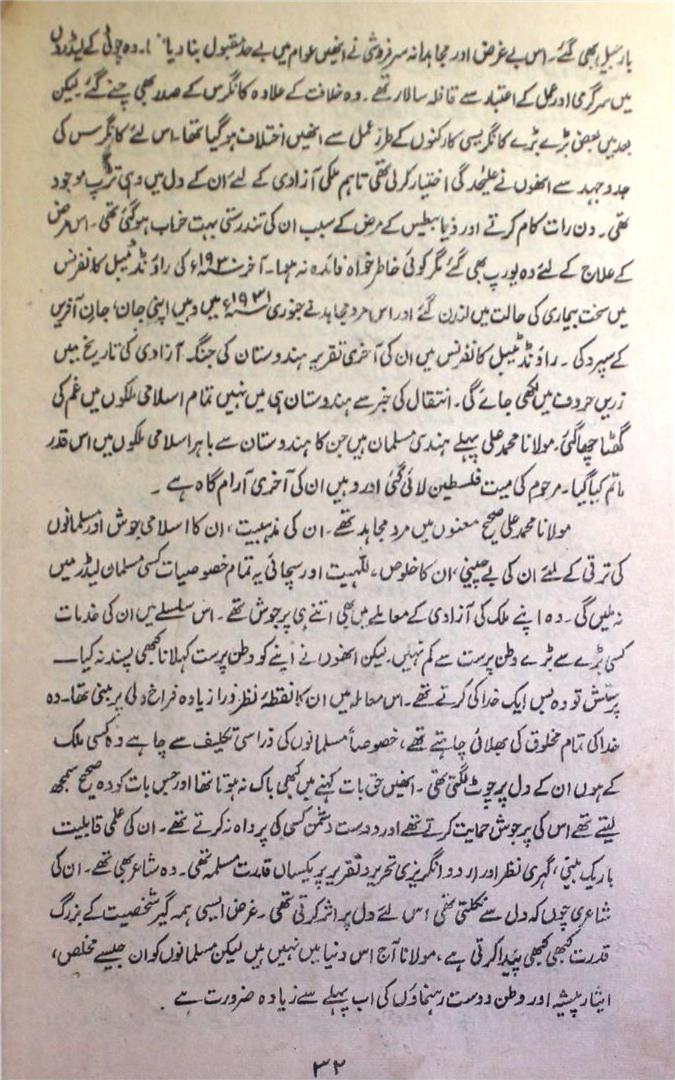 بار جیل بھی گئے۔ اس بے غرض اور مجاہدانہ سرفروشی نے انھیں عوام میں بے حد مقبول بنا دیا تھا۔ وہ چوٹی کے لیڈروں
میں سرگرمی اور عمل کے اعتبار سے قافلہ سالار تھے۔ وہ خلافت کے علاوہ کانگرس کے صدر بھی چنے گئے۔ لیکن
بعد میں بعض بڑے بڑے کانگریسی کارکنوں کے طرزِ عمل سے انھیں اختلاف ہو گیا تھا۔ اس لئے کانگرس کی
جدوجہد سے انھوں نے علیٰحدگی اختیار کر لی تھی تاہم ملکی آزادی کے لئے ان کے دل میں وہی تڑپ موجود
تھی۔ دن رات کام کرتے اور ذیابیطیس کے مرض کے سبب ان کی تندرستی بہت خراب ہو گئی تھی۔ اس مرض
کے علاج کے لئے وہ یورپ بھی گئے مگر کوئی خاطر خواہ فائدہ نہ ہوا۔ آخر ۱۹۳۰ء کی راؤنڈ ٹیبل کانفرنس
میں سخت بیماری کی حالت میں لندن گئے اور اس مرد مجاہد نے جنوری ۱۹۳۱ء میں وہیں اپنی جان، جان آفریں
کے سپرد کی۔ راؤنڈ ٹیبل کانفرنس میں ان کی آخری تقریر ہندوستان کی جنگ آزادی کی تاریخ میں
زریں حروف میں لکھی جائے گی۔ انتقال کی خبر سے ہندوستان ہی میں نہیں تمام اسلامی ملکوں میں غم کی
گھٹا چھا گئی۔ مولانا محمد علی پہلے ہندی مسلمان ہیں جن کا ہندوستان سے باہر اسلامی ملکوں میں اس قدر
ماتم کیا گیا۔ مرحوم کی میت فلسطین لائی گئی اور وہیں ان کی آخری آرام گاہ ہے ۔
مولانا محمد علی صحیح معنوں میں مرد مجاہد تھے۔ ان کی مذہبیت، ان کا اسلامی جوش اور مسلمانوں
کی ترقی کے لئے ان کی بے چینی، ان کا خلوص، للّٰہیت اور سچائی یہ تمام خصوصیات کسی مسلمان لیڈر میں
نہ ملیں گی۔ وہ اپنے ملک کی آزادی کے معاملے میں بھی اتنے ہی پرجوش تھے۔ اس سلسلے میں ان کی خدمات
کسی بڑے سے بڑے وطن پرست سے کم نہیں۔ لیکن انھوں نے اپنے کو وطن پرست کہلانا کبھی پسند نہ کیا ــــ
پرستش تو وہ بس ایک خدا کی کرتے تھے۔ اس معاملہ میں ان کا نقطۂ نظر ذرا زیادہ فراخ دلی پر مبنی تھا۔ وہ
خدا کی تمام مخلوق کی بھلائی چاہتے تھے، خصوصاً مسلمانوں کی ذرا سی تکلیف سے چاہے وہ کسی ملک
کے ہوں ان کے دل پر چوٹ لگتی تھی۔ انھیں حق بات کہنے میں کبھی باک نہ ہوتا تھا اور جس بات کو وہ صحیح سمجھ
لیتے تھے اس کی پرجوش حمایت کرتے تھے اور دوست دشمن کسی کی پرواہ نہ کرتے تھے۔ ان کی علمی قابلیت
باریک بینی، گہری نظر اور اردو انگریزی تحریر و تقریر پر یکساں قدرت مسلمہ تھی۔ وہ شاعر بھی تھے۔ ان کی
شاعری چوں کہ دل سے نکلتی تھی اس لئے دل پر اثر کرتی تھی۔ غرض ایسی ہمہ گیر شخصیت کے بزرگ
قدرت کبھی کبھی پیدا کرتی ہے، مولانا آج اس دنیا میں نہیں ہیں لیکن مسلمانوں کو ان جیسے مخلص،
ایثار پیشہ اور وطن دوست رہنماؤں کی اب پہلے سے زیادہ ضرورت ہے ۔
۳۲